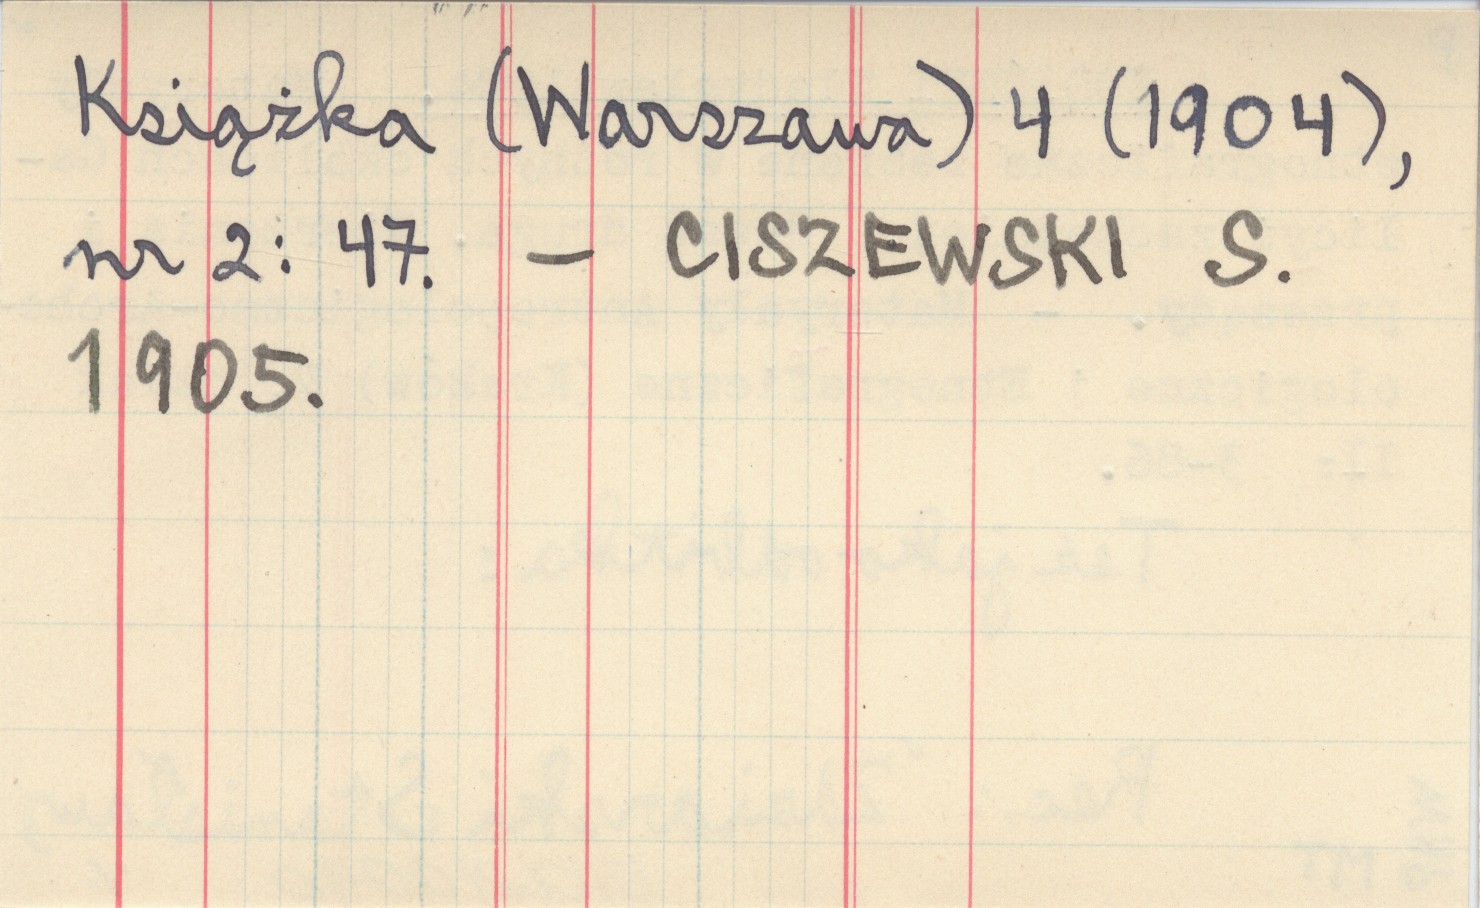 Książka (Warszawa) 4 (1904),
nr 2: 47. – CISZEWSKI S.
1905.